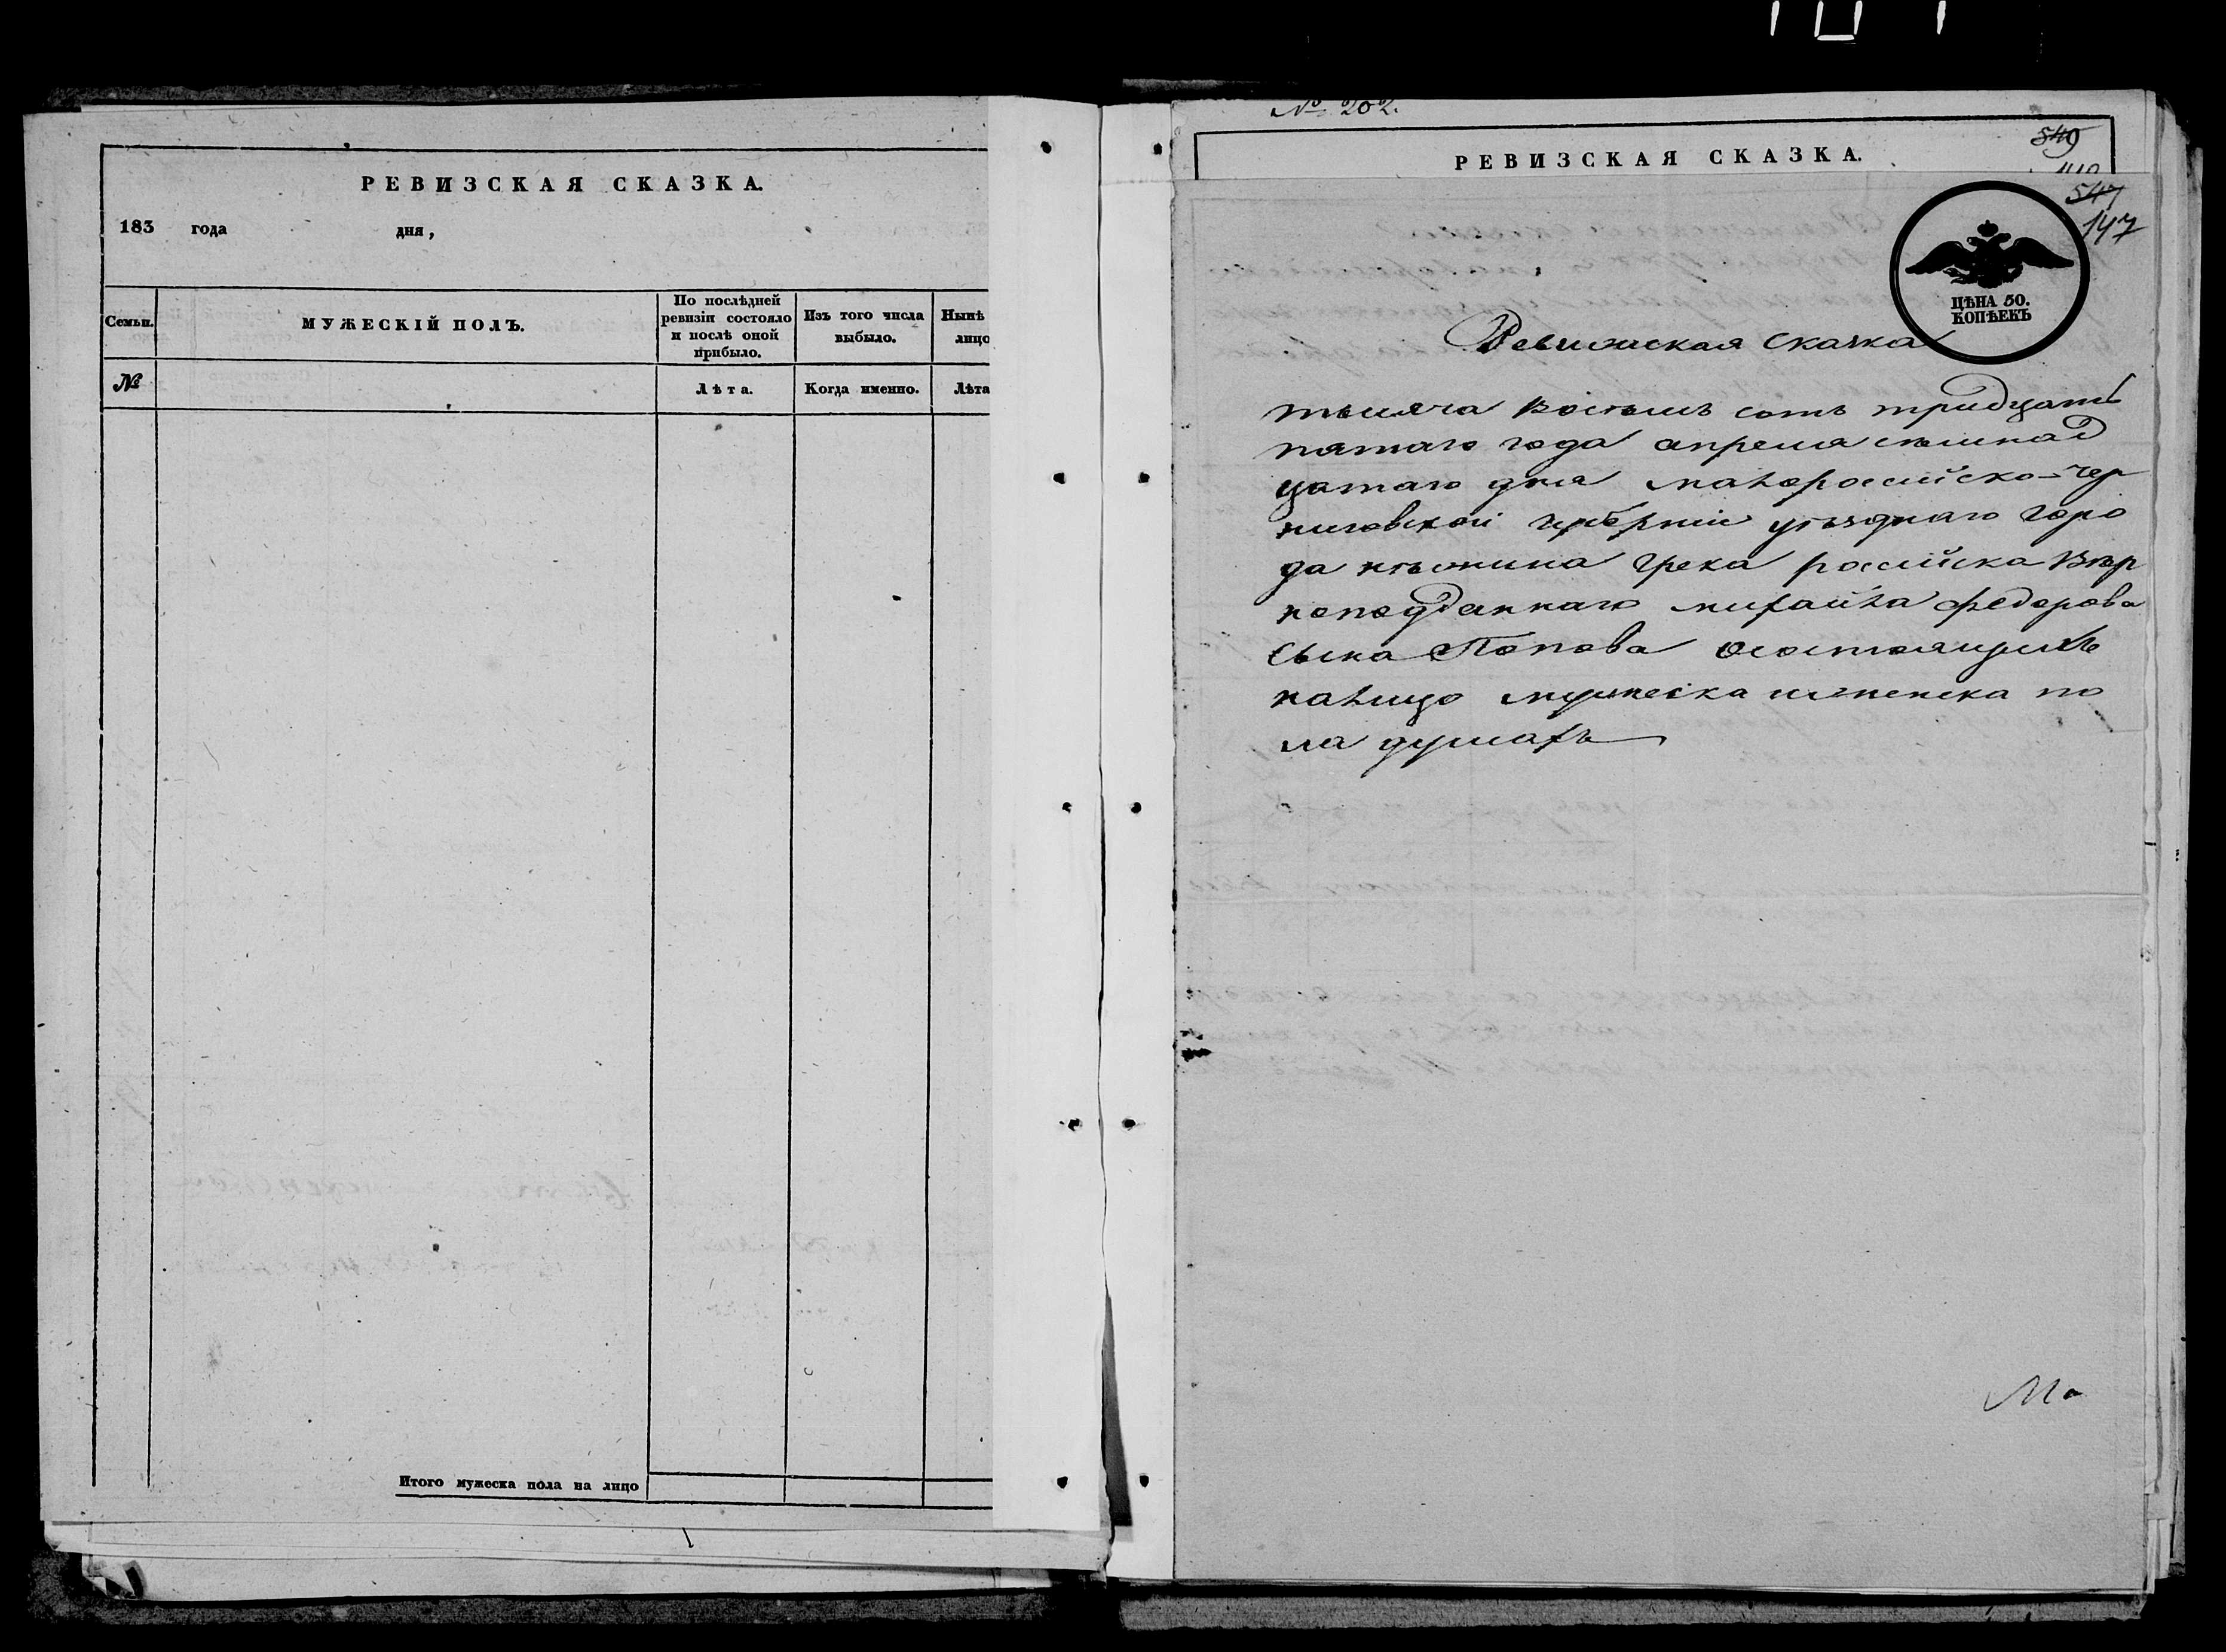 РЕВИЗСКАЯ СКАЗКА.
183 года дня,
Семьи.
МУЖЕСКІЙ ПОЛЪ.
По послѣдней
ревизіи состояло
и послѣ оной
прибыло.
Изъ того числа
выбыло.
Нынѣ
лицо
№
Лѣта.
Когда именно.
Лѣта
Итого мужеска пола на лицо
№ 202.
РЕВИЗСКАЯ СКАЗКА.
549
547
147
ЦѢНА 50.
КОПѢЕКЪ
Ревижская Сказка
тысяча восемь сотъ тридцать
пятаго года апреля семнад
цатаго дня малоросийско-чер
ниговской губерніи уѣзднаго горо
да нѣжина грека росийска вѣр
ноподданнаго михайла федорова
сына Попова осостоящихъ
налицо мужеска иженска по
ла душахъ
Ма